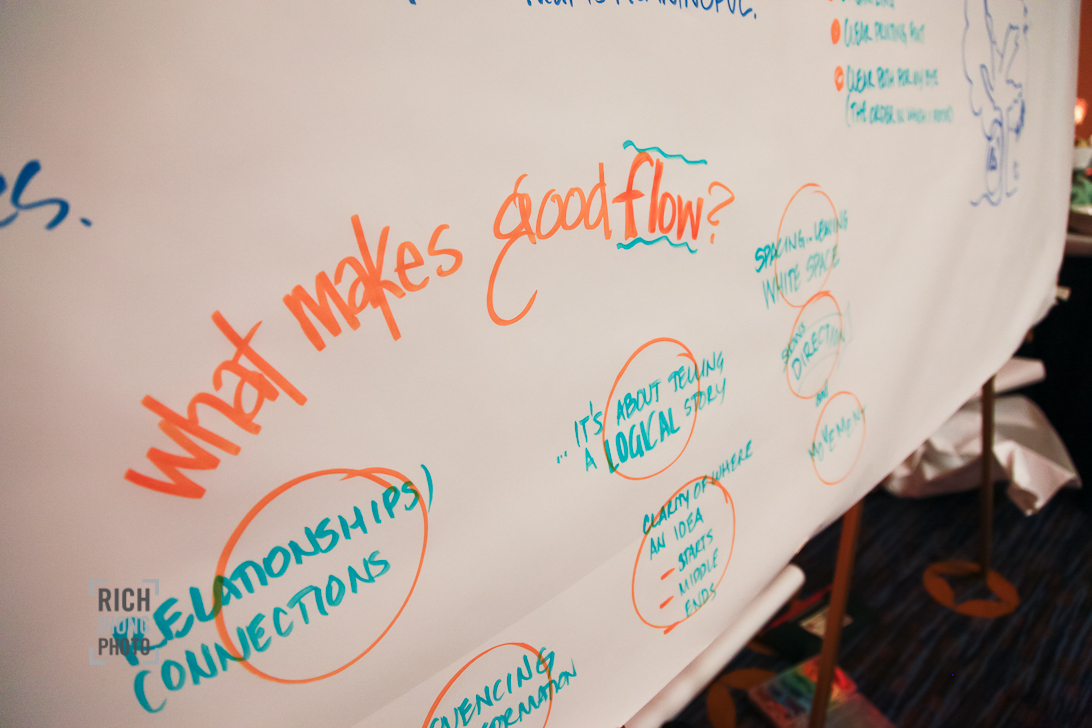 THAT IS MEANINGFUL.
CLEAR
CLEAR PATH FOR MY EYE
(THE ORDER IN WHICH I
es.
What makes good flow?
SPACING - LEAVING
WHITE SPACE
SHOWS
DIRECTION
and
MOVEMENT
... IT'S ABOUT TELLING
A LOGICAL STORY
CLARITY OF WHERE
AN IDEA
- STARTS
- MIDDLE
ENDS
RELATIONSHIPS)
CONNECTIONS
QUENCING
FORMATION
RICH
PHOTO